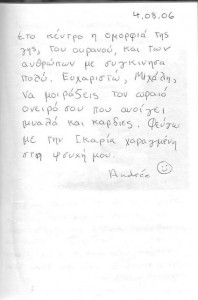 4,08.06
Στο κέντρο η ομορφιά της
γης, του ουρανού, και των
ανθρώπων με συγκίνησα
πολύ. Ευχαριστώ, Μιχάλη,
να μοιράζεις τον ωραίο
ονειρό σου που ανοίγει
μυαλό και καρδιες. Φεύγω
με την Ικαρία χαραγμένη
στη ψυχή μου.